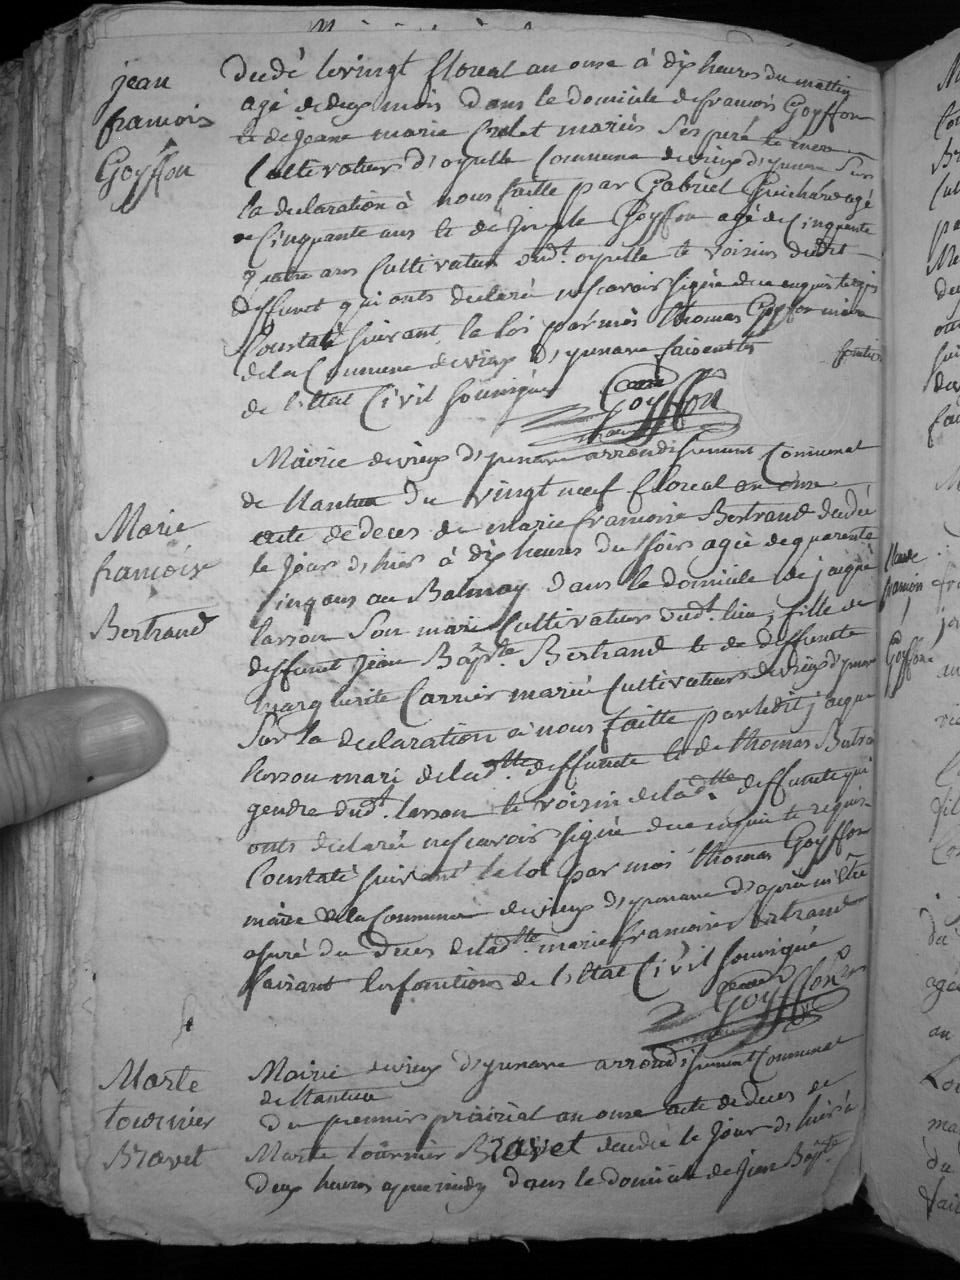 jean
francois
Goyffon
décdé le vingt floreal an onse à dix heures du mattin
agé de deux mois dans le domicile de francois Goyffon
et de jeane marie Crolet mariés ses peré et mere
Cultivateurs d'oyselle Commune de vieux d'ysenave Sur
la declaration à nous faitte par Gabriel Guichard agé
de Cinquante ans et de joseph Goyffon agé de Cinquante
quatre ans Cultivateur dudt. oyselle et voisins dudit
deffunct qui onts declaré ne scavoir signé de ce enquis et requis
Constaté suivant la loi par moi thomas Goyffon maire
de la Commune de vieux d'ysenave faisant les fontions
de l'Etat Civil Sousigné
Goyffon
Marie
francoise
Bertrand
Mairie de vieux d'ysenave arrondissement Communal
de Nantua du vingt neuf floreal an onse
acte de deces de marie francoise Bertrand decdée
le jour d'hier à dix heures du soir agée de quarente
cinq ans au Balmay dans le domicile de jacque
lasson son mari Cultivateur dudt. lieu, fille de
deffunct jean Bapte. Bertrand et de deffuncte
marguerite Carrier mariés Cultivateurs de vieux d'ysenave
Sur la declaration à nous faitte par ledit jacque
lasson mari de ladtte deffuncte et de thomas Butra
gendre dudt. lasson et voisin de ladtte deffuncte qui
onts declaré ne scavoir signé de ce enquis et requis
Constaté suivant la loi par moi thomas Goyffon
maire de la Commune de vieux d'ysenave d'après m'etre
assuré du Deces de ladtte marie francoise bertrand
faisant les fonctions de l'Etat Civil Sousigné
Goyffon
Marie
tournier
Bravet
Mairie de vieux d'ysenave arrondissement Communal
de Nantua
du premier prairial an onse acte de deces de
Marie tournier Bravet decdée le jour d'hier à
deux heures apres midy dans le domicile de jean Bapte.
Claude
francois
Goyffon